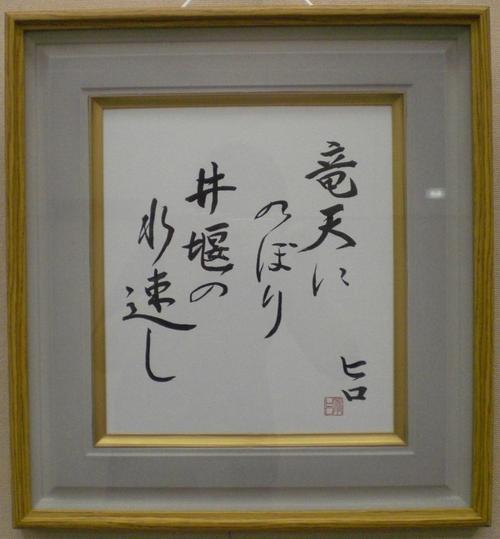 竜天に
のぼり
井堰の
水速し
ヒロ